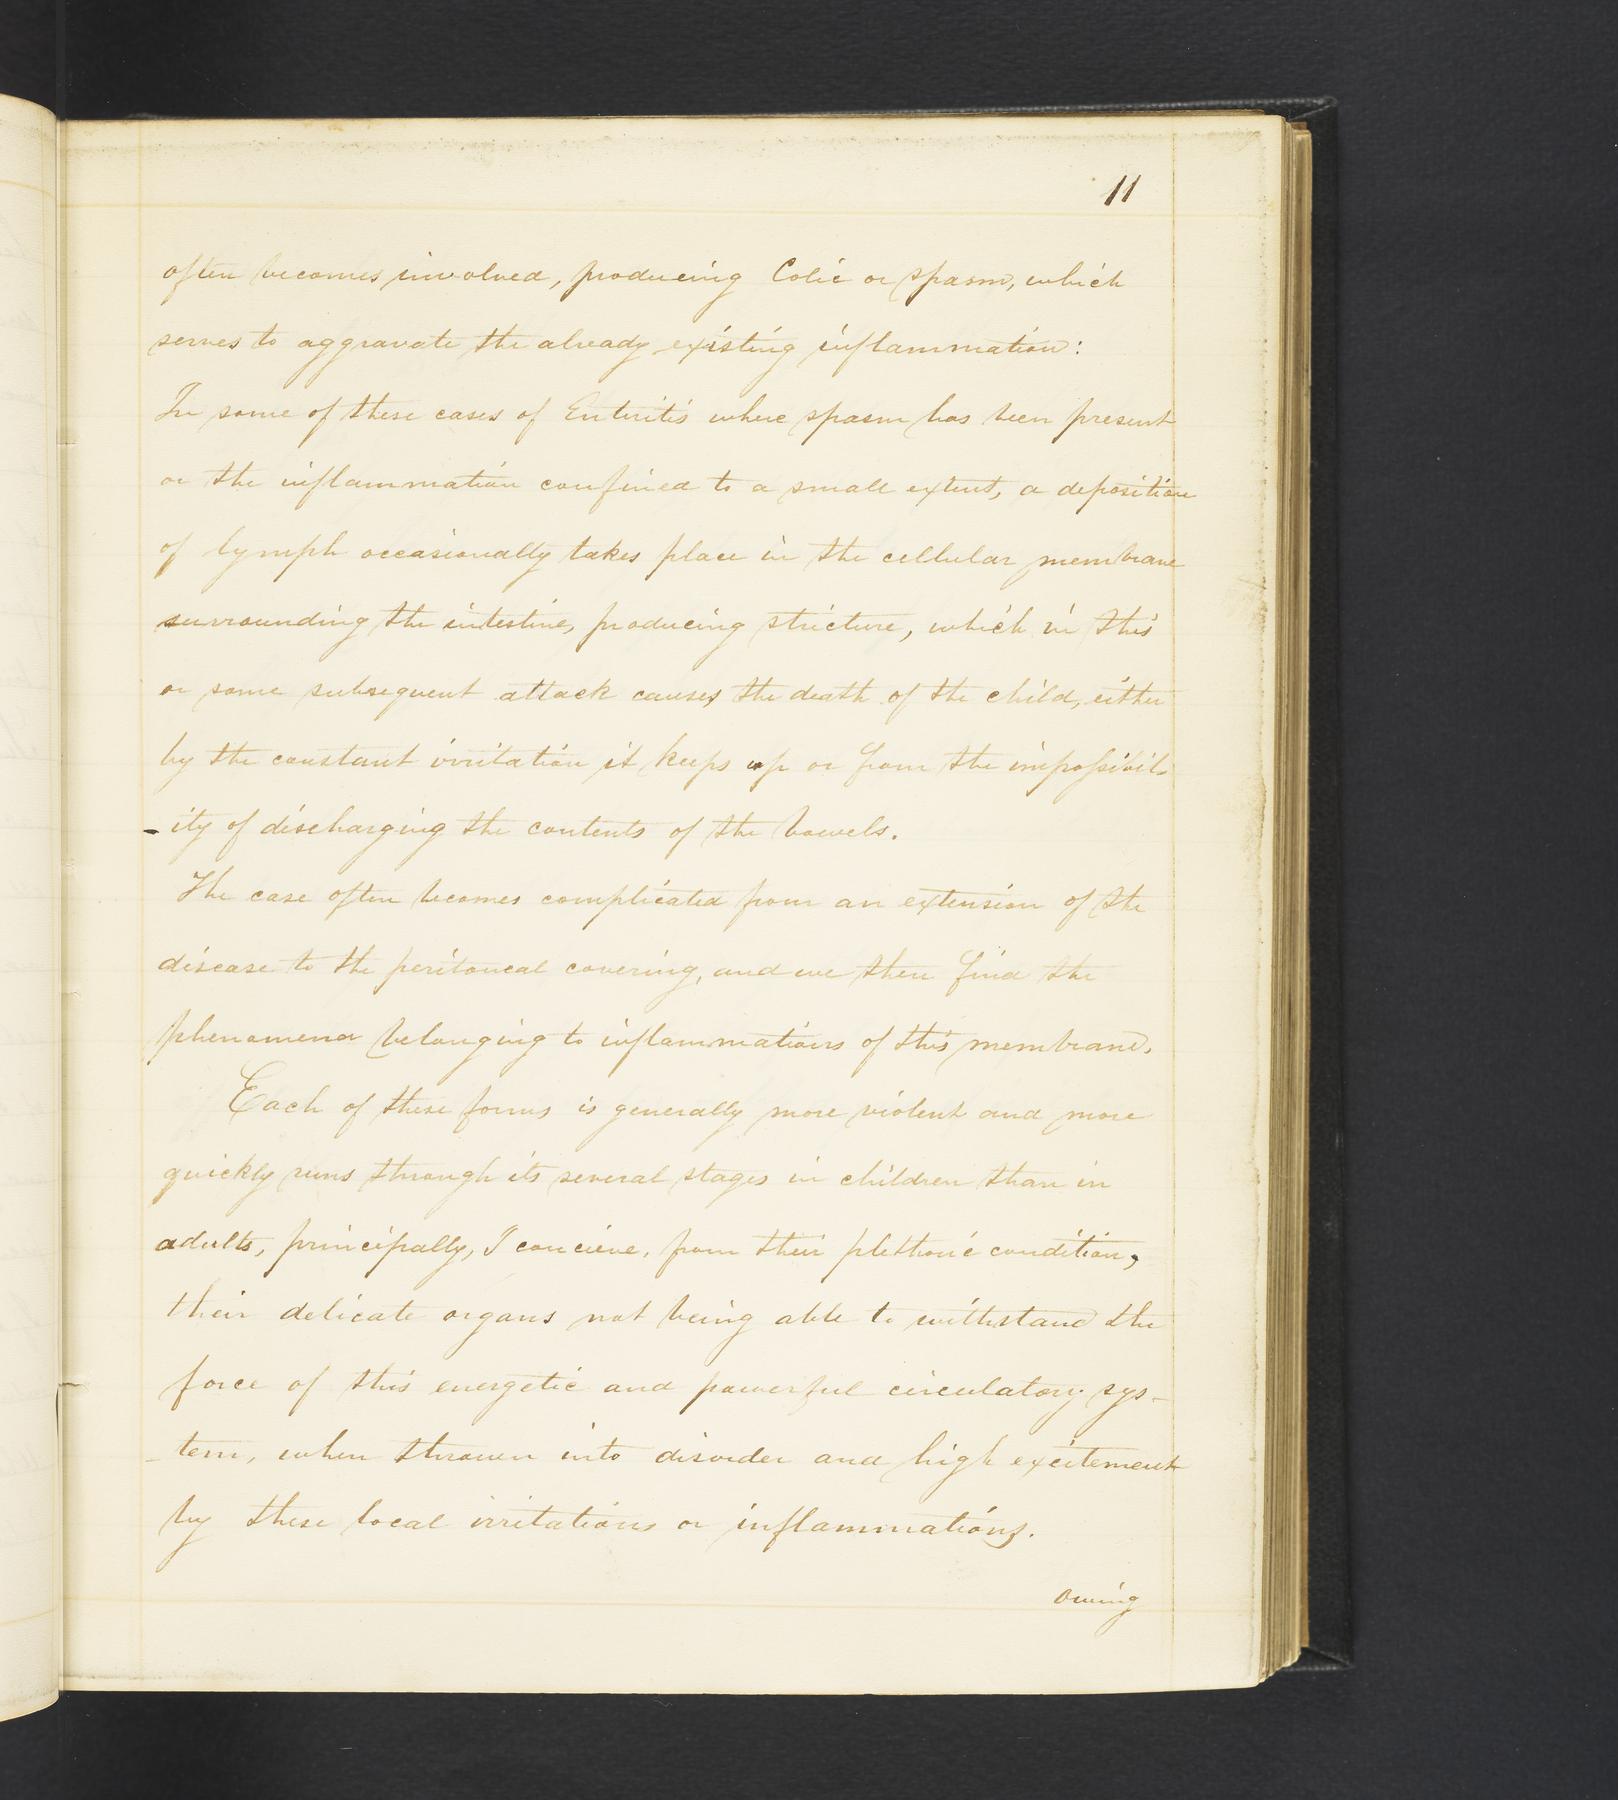 11
often becomes involved, producing Colic or spasm, which
serves to aggravate the already existing inflammation:
In some of these cases of Enteritis where spasm has been present
or the inflammation confined to a small extent, a deposition
of lymph occasionally takes place in the cellular membrane
surrounding the intestine, producing stricture, which in this
or some subsequent attack causes the death of the child, either
by the constant irritation it keeps up or from the impossibil-
-ity of discharging the contents of the bowels.
The case often becomes complicated from an extension of the
disease to the peritoneal covering, and we then find the
phenomena belonging to inflammations of this membrane.
Each of these forms is generally more violent and more
quickly runs through its several stages in children than in
adults, principally, I concieve, from their plethoric condition,
their delicate organs not being able to withstand the
force of this energetic and powerful circulatory sys-
-tem, when thrown into disorder and high excitement
by these local irritations or inflammations.
owing